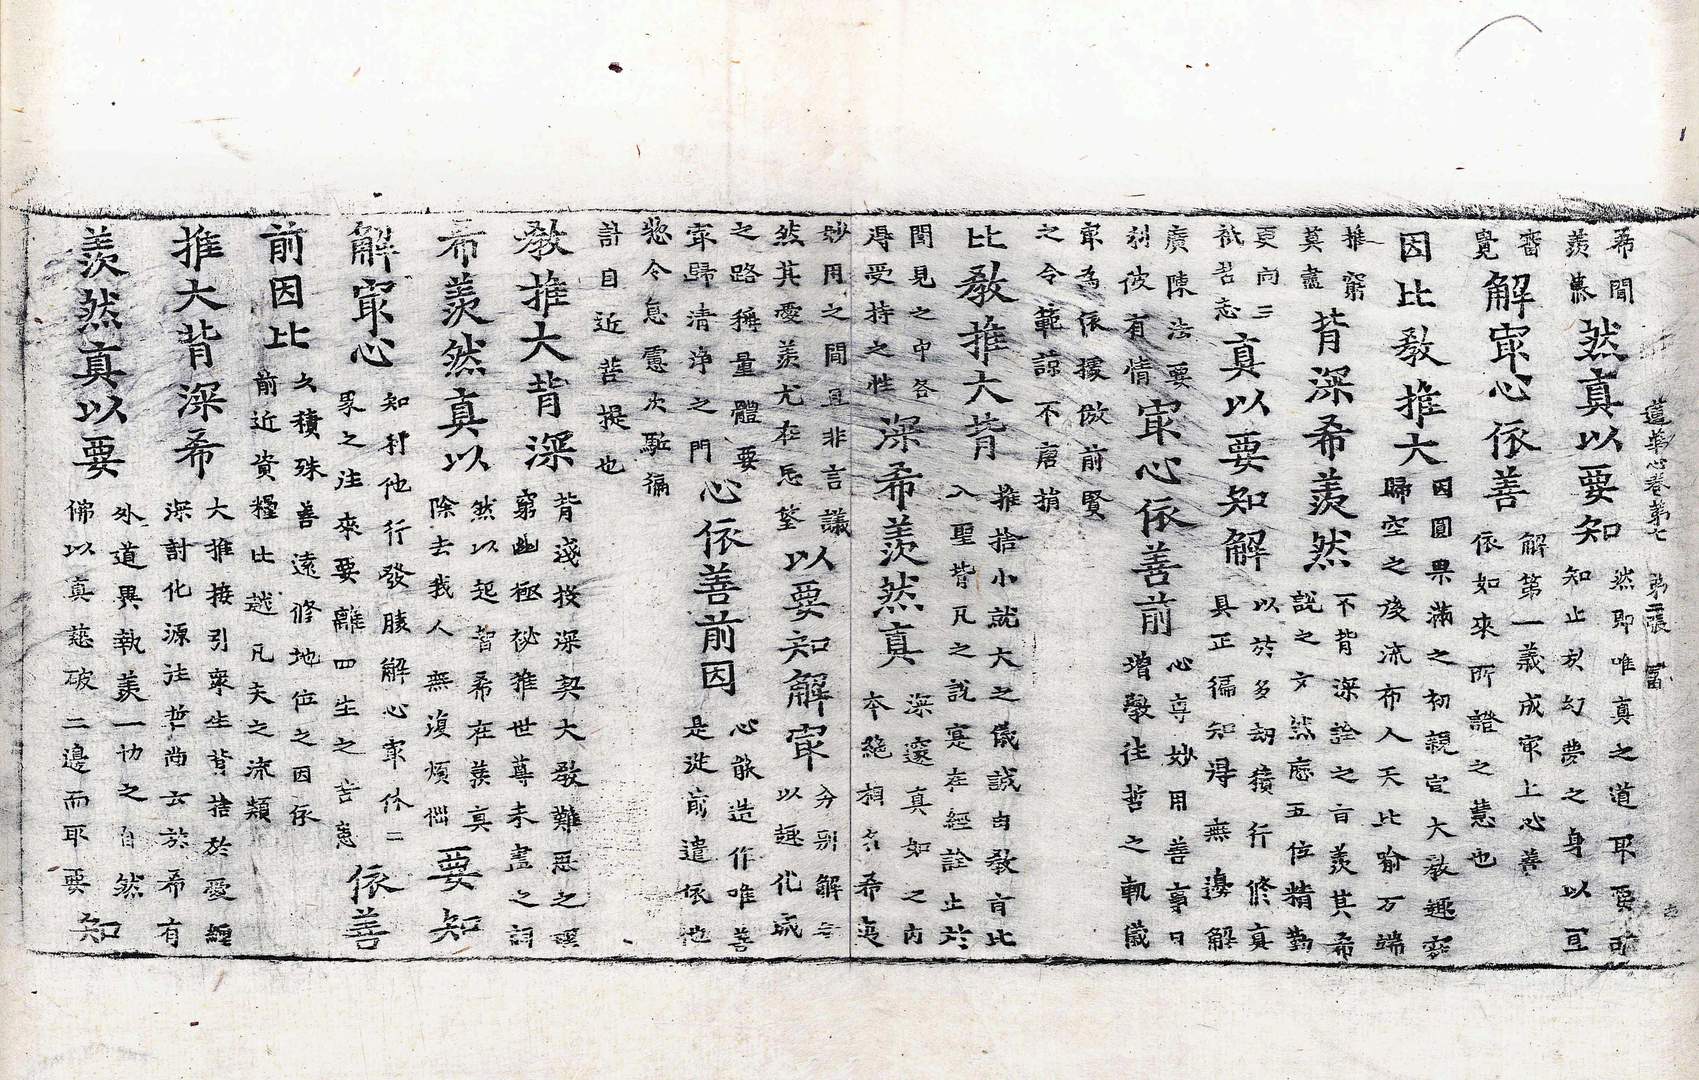 蓮華心卷第七 第二張 富
希聞
羨慕
然真以要知
然即唯真之道耶要可
知止於幻夢之身以可
審
覺
解㝡心依善
解第一義成㝡上心善
依如來所證之慧也
因比教推大
因圓果滿之初親宣大教趣寂
歸空之後流布人天比喻万端
推窮
莫盡
背深希羨然
不背深詮之旨羨其希
說之文然應五位精勤
更向三
祇若志
真以要知解
以於多劫積行修真
具正徧知得無邊解
廣陳法要
利彼有情
㝡心依善前
心尊妙用善事曰
增擊往哲之軌儀
㝡為依據倣前賢
之令範諒不唐捐
比教推大背
推捨小就大之儀誠由教旨比
入聖背凡之說寔在經詮止於
聞見之中各
得受持之性
深希羨然真
深邃真如之內
本絕相名希夷
妙用之間亘非言議
然其憂羨尤在忘筌
以要知解㝡
分別解
以趣化城
之路稱量體要
㝡歸清淨之門
心依善前因
心能造作唯善
是從前遣依他
慾令息慮次駈徧
計自近菩提也
教推大背深
背淺投深契大教難思之理
窮幽極秘推世尊未盡之詞
希羨然真以
然以起智希在羨真
除去我人無復煩惱
要知
解㝡心
知利他行發勝解心㝡休二
界之往來要離四生之苦
依善
前因比
久積殊善遠修地位之因依
前近資糧比越凡夫之流類
推大背深希
大推接引眾生背捨於愛纏
深討化源往哲尚云於希有
羨然真以要
外道異執羨一切之自然
佛以真慈破二邊而耶要
知